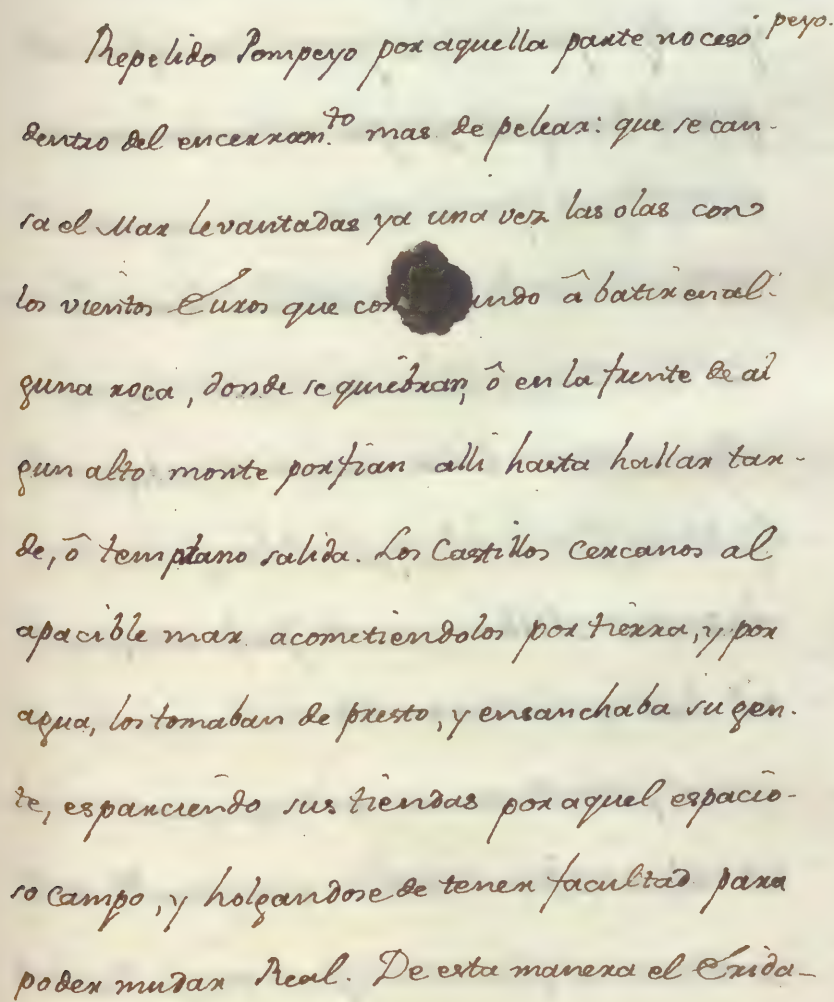 Repelido Pompeyo por aquella parte no cesó peyo.
dentro del encerram.to mas de pelear: que se can-
sa el Mar levantadas ya una vez las olas con
los vientos Euros que undo â batir en al-
guna roca, donde se quiebran, ô en la frente de al
gun alto monte porfian alli hasta hallar tar-
de, ô temprano salida. Los Castillos cercanos al
apacible mar acometiendolos por tierra, y por
agua, los tomaban de presto, y ensanchaba su gen-
te, esparciendo sus tiendas por aquel espacio-
so campo, y holgandose de tener facultad para
poder mudar Real. De esta manera el Erida-